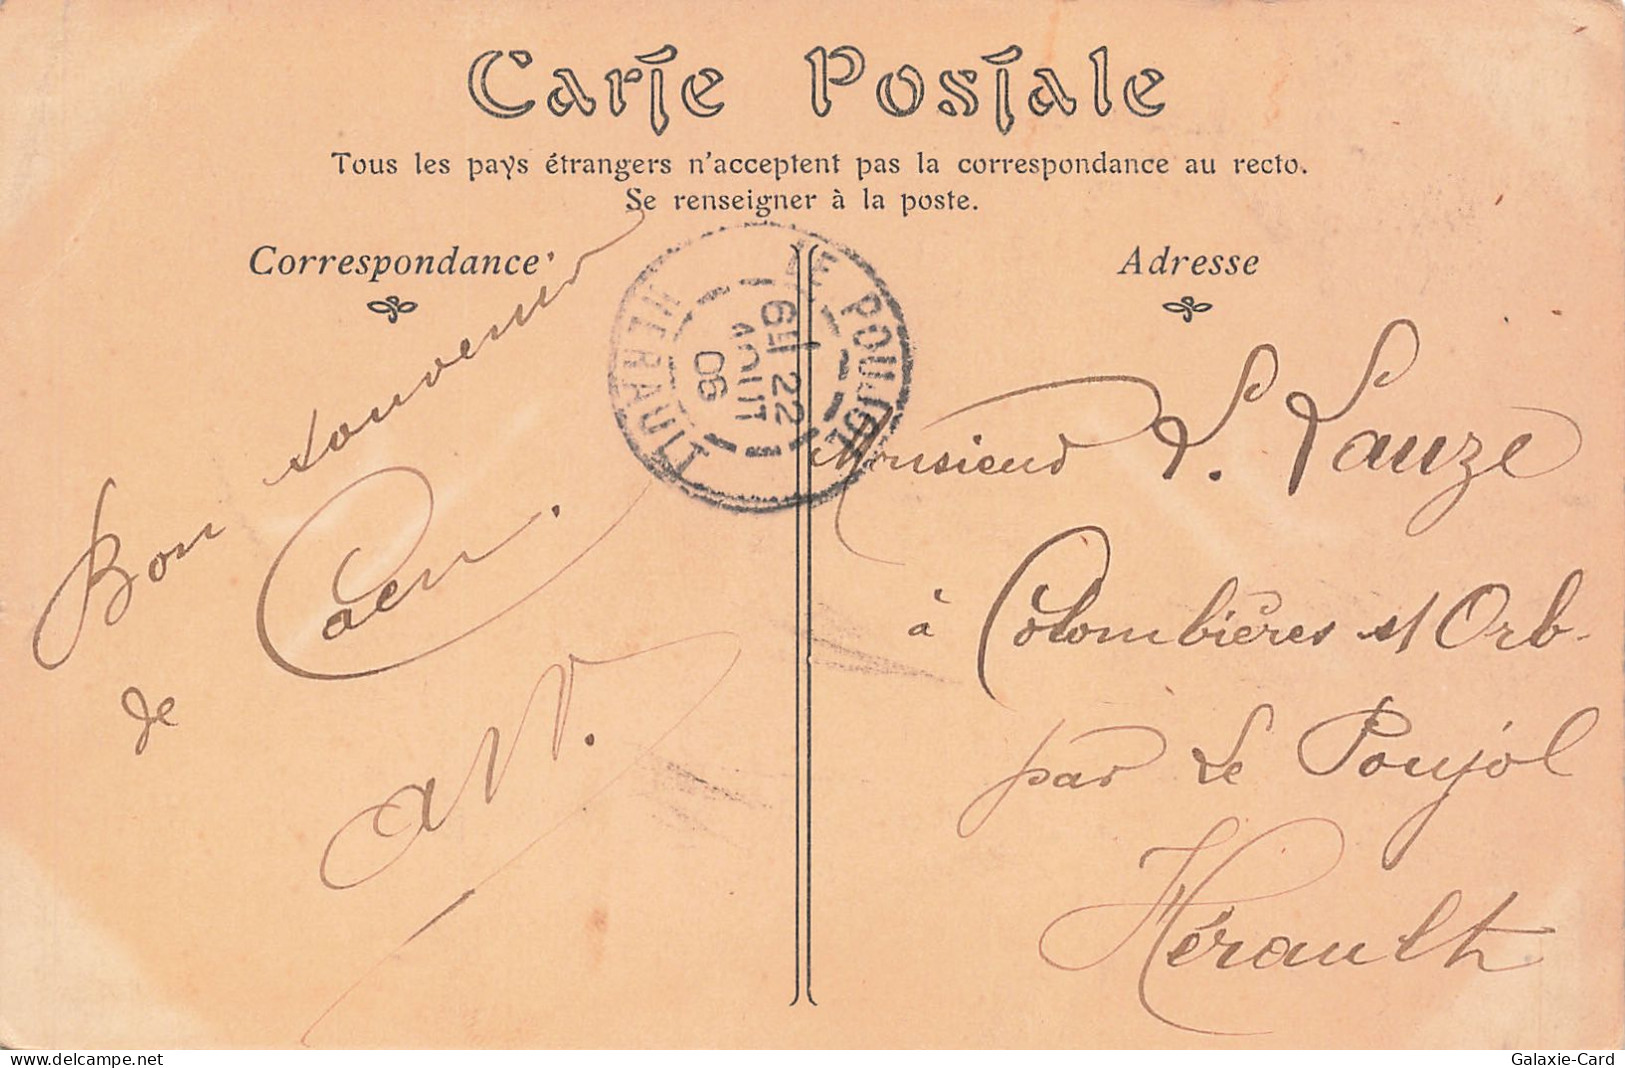 Carte Postale
Tous les pays étrangers n'acceptent pas la correspondance au recto.
Se renseigner à la poste.
Correspondance
Adresse
LE POUJOL
6H 22
AOUT
06
HERAULT
Bon souvenir
de Caen.
Monsieur L. Lauze
à Colombières s/ Orb-
par Le Poujol
Hérault
www.delcampe.net
Galaxie-Card